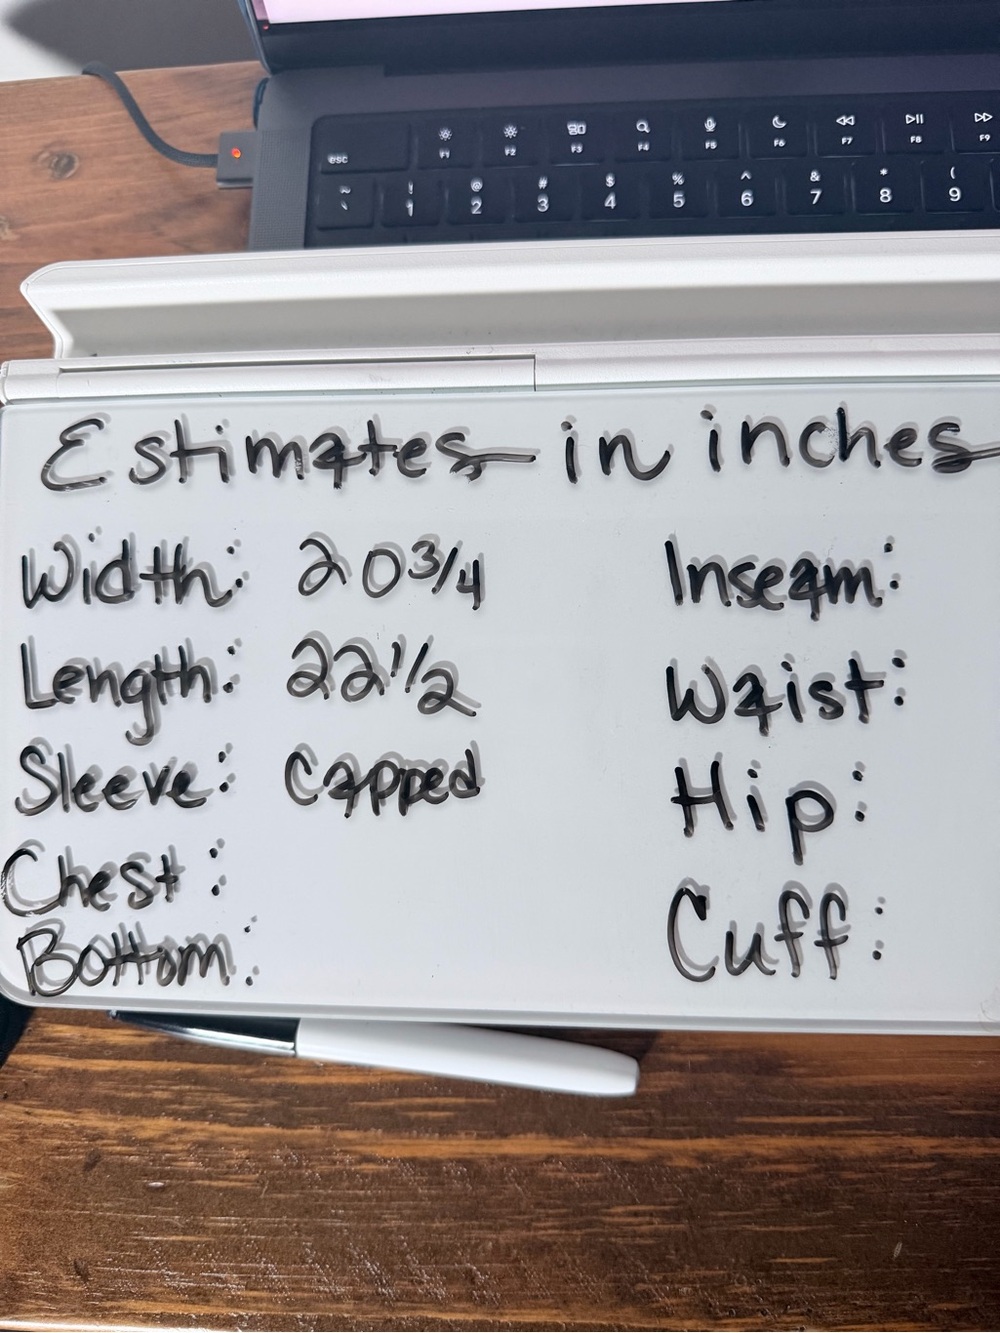 esc F1 F2 F3 F4 F5 F6 F7 F8 F9
~ ` ! 1 @ 2 # 3 $ 4 % 5 ^ 6 & 7 * 8 ( 9
Estimates in inches
Width: 20 3/4
Length: 22 1/2
Sleeve: Capped
Chest:
Bottom:
Inseam:
Waist:
Hip:
Cuff: